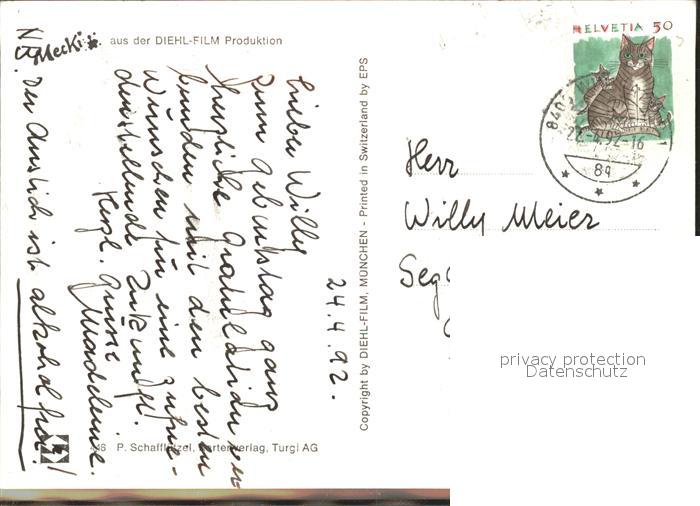 Mecki
aus der DIEHL-FILM Produktion
24.4.92.
Lieber Willy
Zum Geburtstag ganz
herzliche Gratulation ver-
bunden mit den besten
Wünschen für eine zufrie-
denstellende Zukunft.
Herzl. Grüsse
Madeleine.
N.B. Der Anstich ist alkoholfrei!
Copyright by DIEHL-FILM, MÜNCHEN - Printed in Switzerland by EPS
P. Schafflützel, Kartenverlag, Turgi AG
HELVETIA 50
22-4.92-16
Herr
Willy Meier
privacy protection
Datenschutz